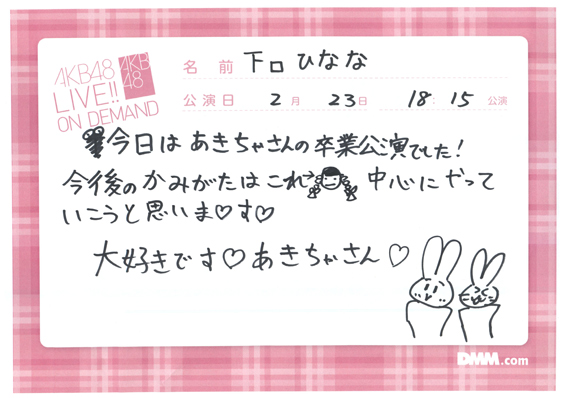 AKB48
LIVE!!
ON DEMAND
AKB
48
名前 下口ひなな
公演日 2月 23日 18:15 公演
今日はあきちゃさんの卒業公演でした!
今後のかみがたはこれ→ 中心にやって
いこうと思いま♡す♡
大好きです♡あきちゃさん♡
DMM.com